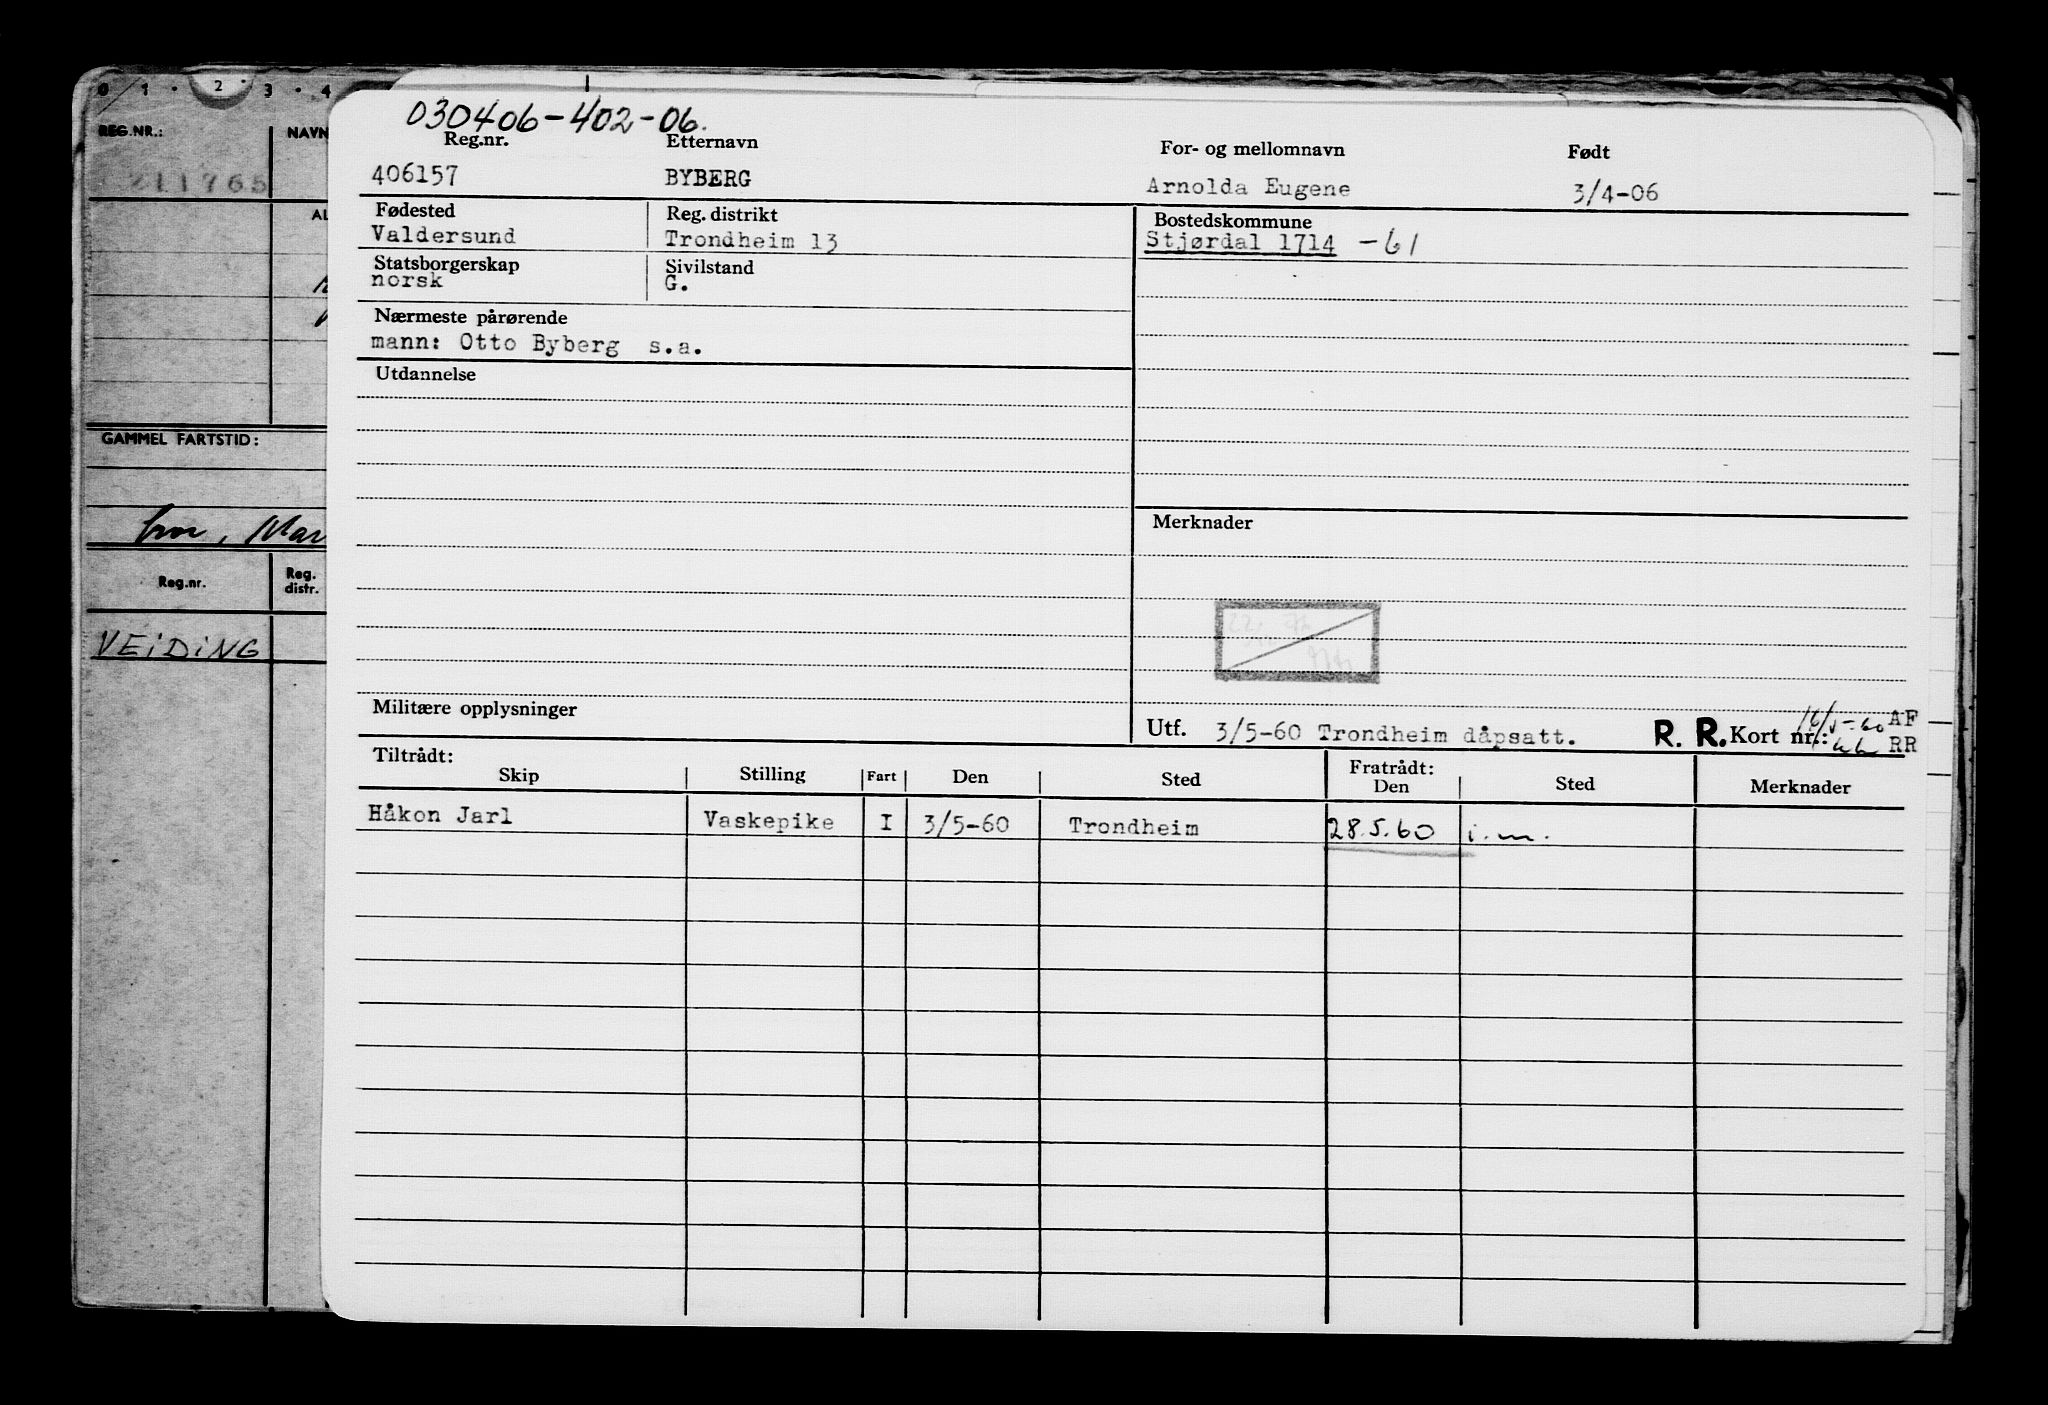 0 1 2 3 4
REG.NR.: NAVN
211765
AL
GAMMEL FARTSTID:
Mar
Reg.nr. Reg. distr.
VEiDiNG
030406-402-06.
Reg.nr. Etternavn For- og mellomnavn Født
406157 BYBERG Arnolda Eugene 3/4-06
Fødested Reg. distrikt Bostedskommune
Valdersund Trondheim 13 Stjørdal 1714 -61
Statsborgerskap Sivilstand
norsk G.
Nærmeste pårørende
mann: Otto Byberg s.a.
Utdannelse
Merknader
Militære opplysninger
Utf. 3/5-60 Trondheim dåpsatt. R. R. Kort nr.: 16/5-60 AF
RR
Tiltrådt: Fratrådt:
Skip Stilling Fart Den Sted Den Sted Merknader
Håkon Jarl Vaskepike I 3/5-60 Trondheim 28.5.60 i.m.